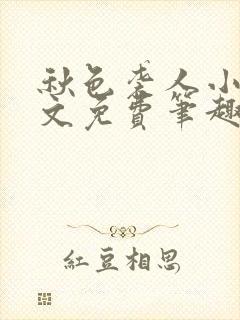 秋色袭人小
文免費筆趣
紅豆相思